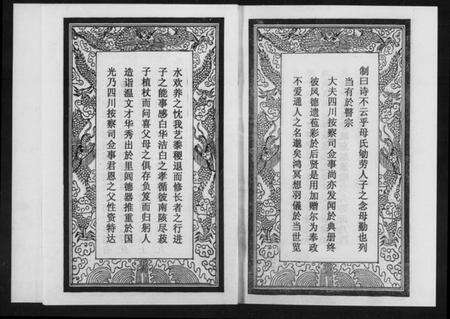 光乃四川按察司佥事君恩之父性资特达
造诣温文才华秀出於里闾德器推重於国
子植杖而问喜父母之俱存负笈而归躬人
子之能事感白华洁白之孝循彼南陔尽菽
水欢养之忱我艺黍稷退而修长者之行进
不爱通人之名邈矣鸿冥想羽儀於当世览
彼风德遗苞彩於后贤是用加赠尔为奉政
大夫四川按察司佥事尚亦发闻於典册终
当有於瞽宗
制曰诗不云乎母氏劬劳人子之念母勤也列